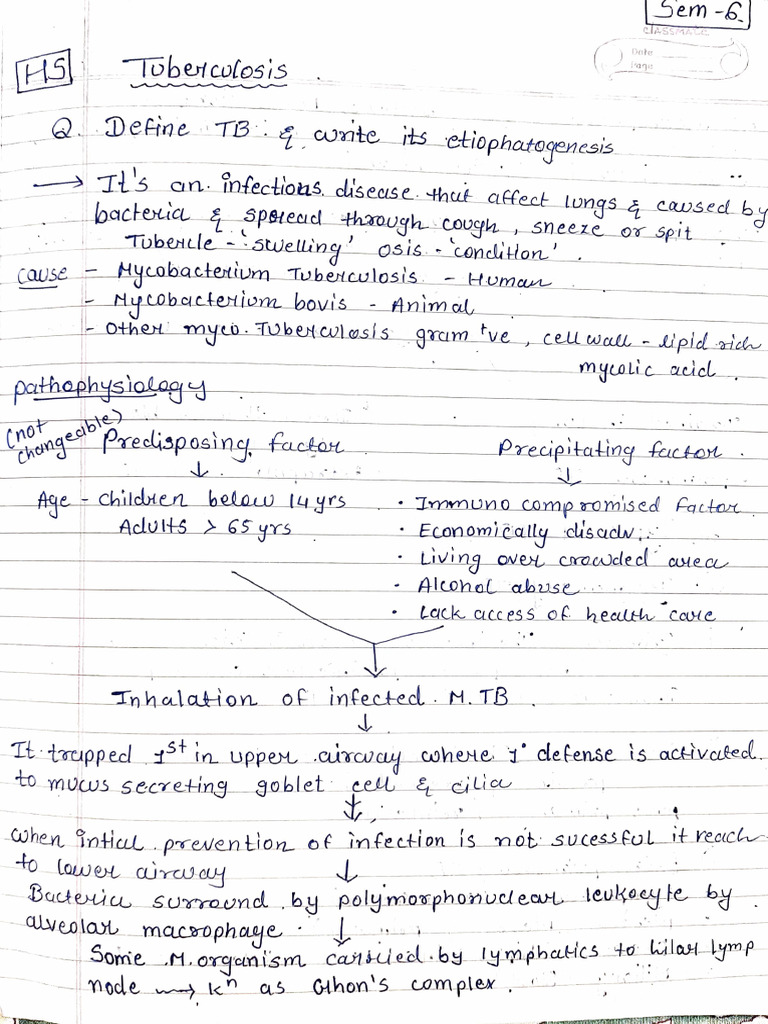 Sem - 6
CLASSMATE
Date
Page
HS Tuberculosis.
Q. Define TB. & write its etiophatogenesis
→ It's an infections disease that affect lungs & caused by
bacteria & spread through cough, sneeze or spit.
Tubercle - 'swelling' osis - 'condition'.
cause - Mycobacterium Tuberculosis - Human
- Mycobacterium bovis - Animal
- Other myco. Tuberculosis gram +ve, cell wall - lipid rich
mycolic acid.
pathophysiology
(not changeable) Predisposing factor Precipitating factor.
↓ ↓
Age - children below 14 yrs • Immuno compromised factor
Adults > 65 yrs • Economically disadv.
• Living over crowded area
• Alcohol abuse
• Lack access of health care
↓
Inhalation of infected M. TB.
↓
It trapped 1st in upper airway where 1° defense is activated.
to mucus secreting goblet cell & cilia.
↓
when intial prevention of infection is not sucessful it reach
to lower airway ↓
Bacteria surround by polymorphonuclear leukocyte by
alveolar macrophage. ↓
Some M. organism carried by lymphatics to hilar lymp
node → kⁿ as Ghon's complex.